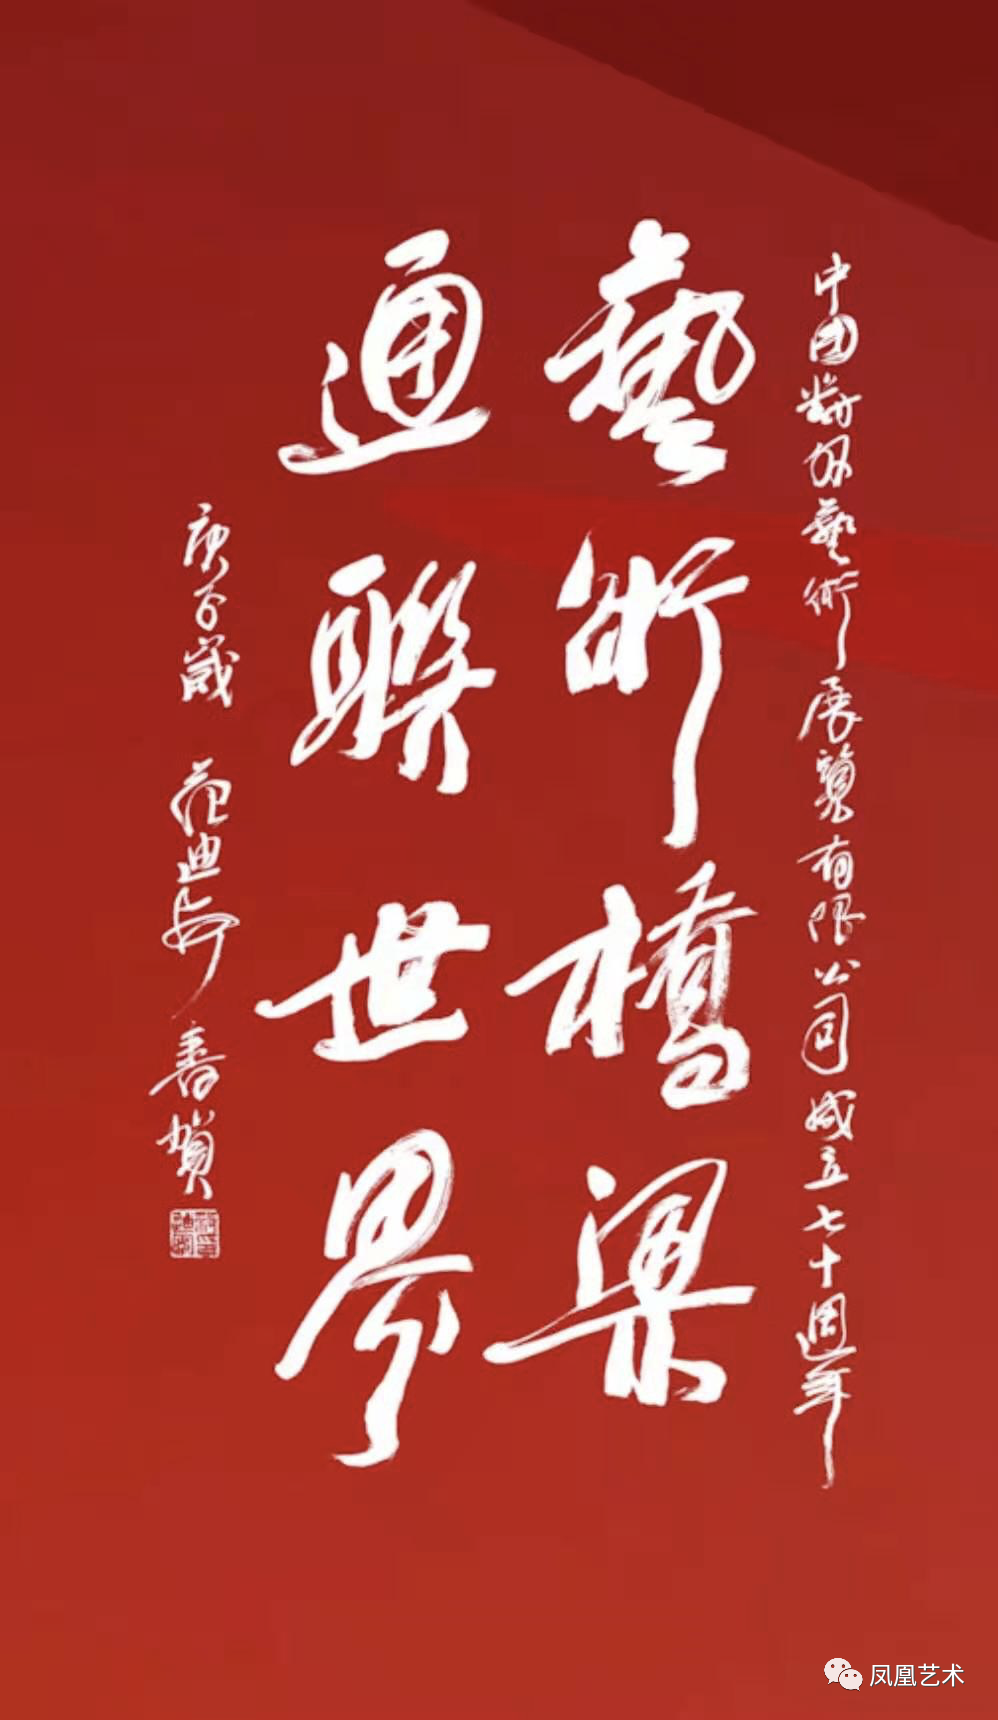 中國對外藝術展覽有限公司成立七十週年
藝術橋梁
通聯世界
庚子歲 范迪安書賀
凤凰艺术